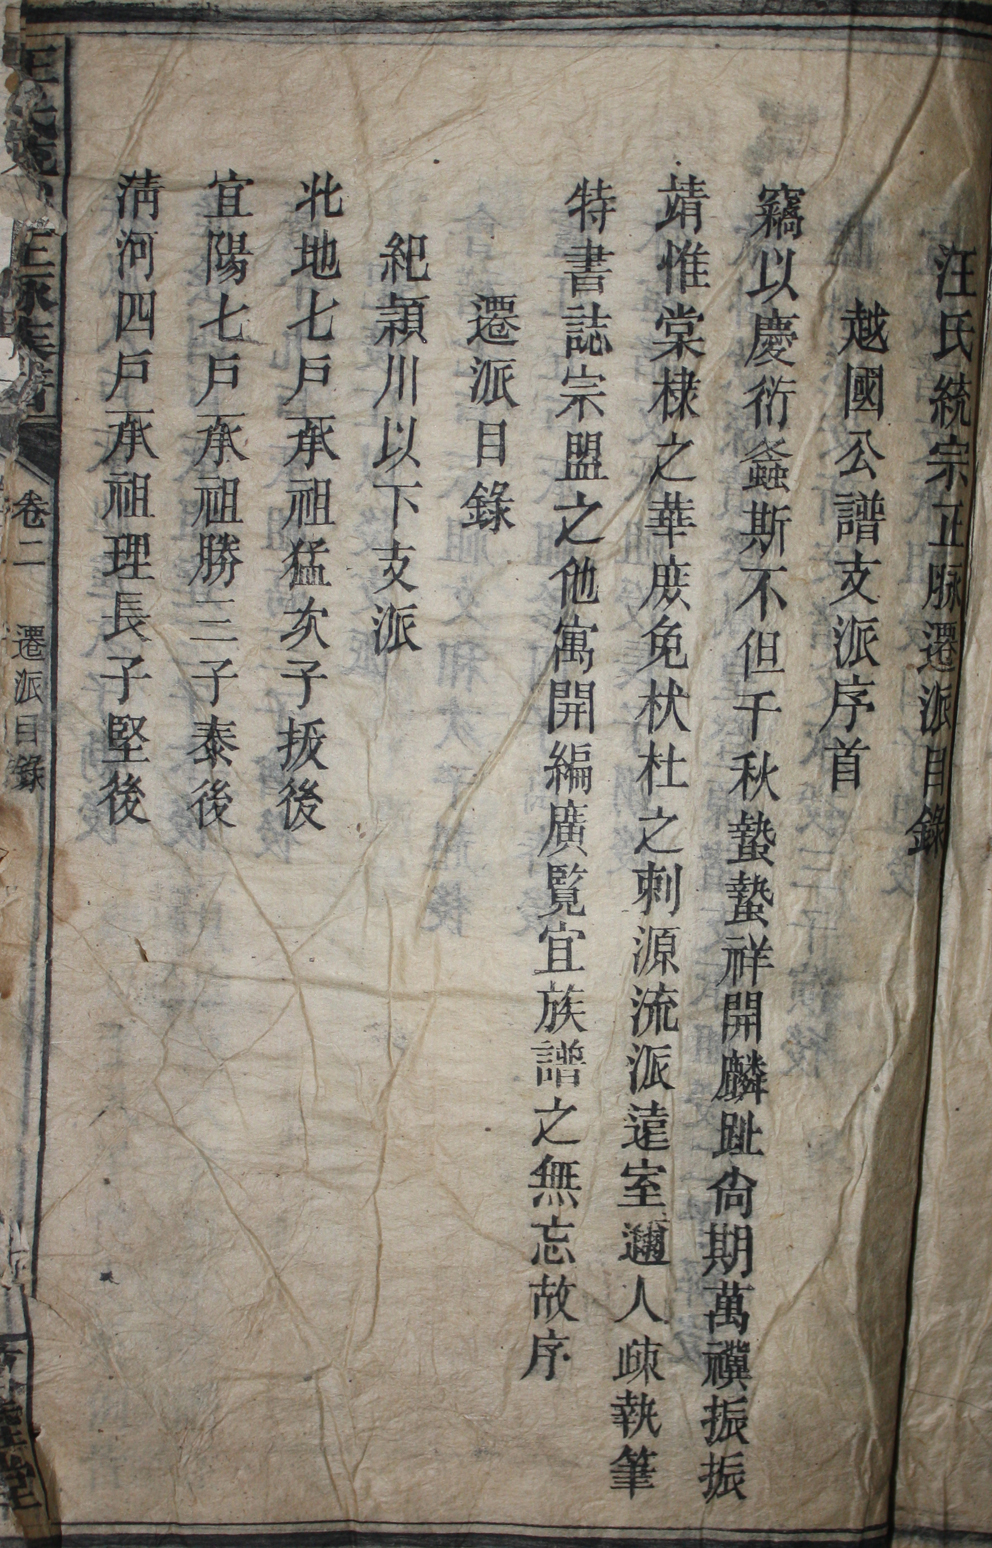 汪氏統宗正脉遷派目錄
越國公譜支派序首
竊以慶衍螽斯不但千秋蟄蟄祥開麟趾尙期萬禩振振
靖惟棠棣之華庻免杕杜之刺源流派遠室邇人疎執筆
特書誌宗盟之他寓開編廣覽宜族譜之無忘故序
遷派目錄
紀頴川以下支派
北地七戶承祖猛次子扳後
宜陽七戶承祖勝三子泰後
淸河四戶承祖理長子堅後
正脉
卷二
遷派目錄
堂